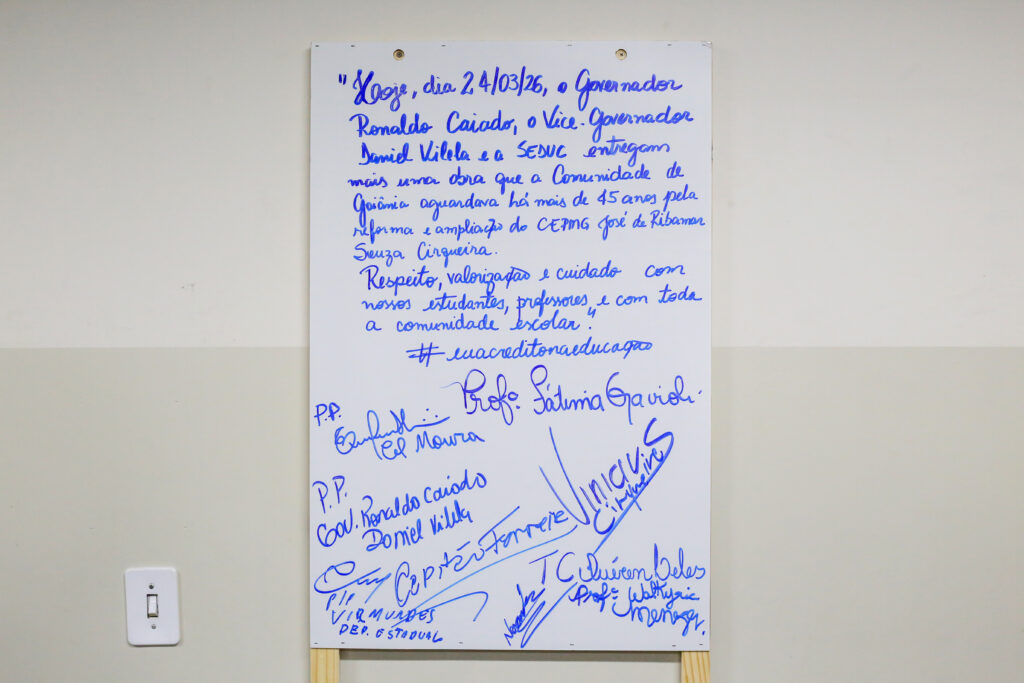 "Hoje, dia 24/03/26, o Governador
Ronaldo Caiado, o Vice-Governador
Daniel Vilela e a SEDUC entregam
mais uma obra que a Comunidade de
Goiânia aguardava há mais de 45 anos pela
reforma e ampliação do CEPMG José de Ribamar
Souza Cirqueira.
Respeito, valorização e cuidado com
nossos estudantes, professores, e com toda
a comunidade escolar".
#euacreditonaeducação
Profª. Fátima Gavioli.
P.P.
Cel Moura
P.P.
GOV. Ronaldo Caiado
Daniel Vilela
VINICIUS
Cirqueira
Capitão Ferreira
TC
P/P
VIRMONDES
DEP. ESTADUAL
Profª Walkyria
Menezes.